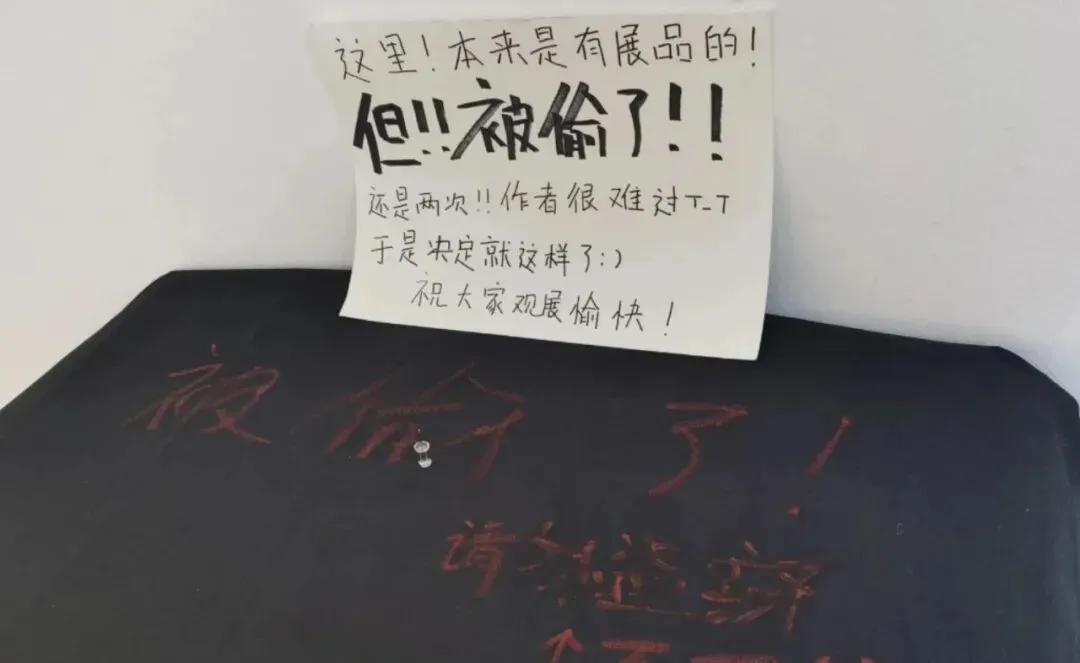 这里！本来是有展品的！
但!!被偷了！！
还是两次!!作者很难过T_T
于是决定就这样了:)
祝大家观展愉快！
被偷了！
请